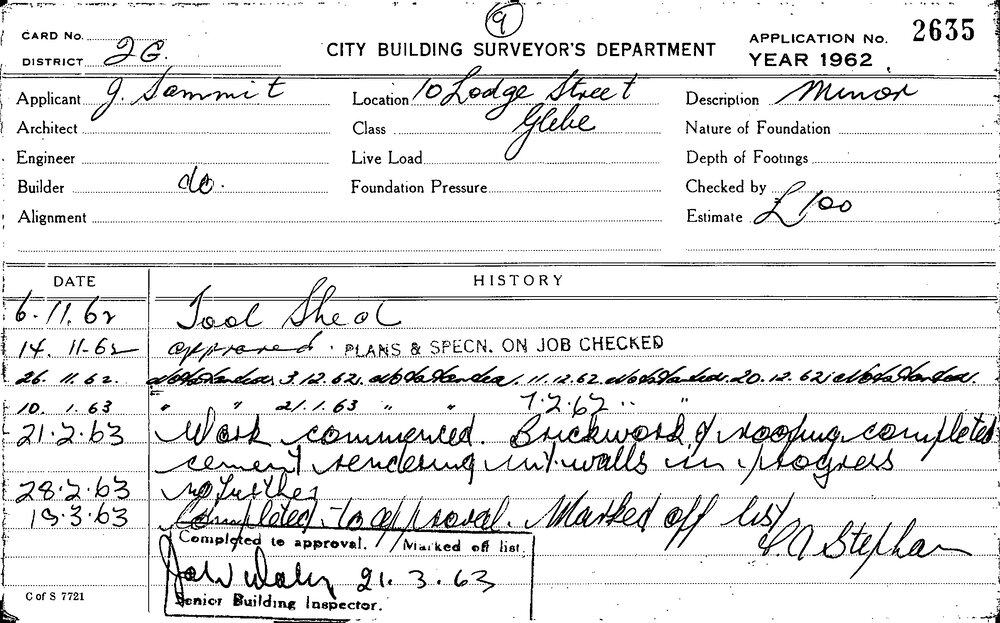 9
CARD No.
DISTRICT 2G.
CITY BUILDING SURVEYOR'S DEPARTMENT
APPLICATION No. 2635
YEAR 1962
Applicant J. Sammit Location 10 Lodge Street Description Minor
Architect Class Glebe Nature of Foundation
Engineer Live Load Depth of Footings
Builder do. Foundation Pressure Checked by
Alignment Estimate £100
DATE HISTORY
6.11.62 Tool Shed
14.11-62 approved. PLANS & SPECN. ON JOB CHECKED
26.11.62. Not Started, 3.12.62, Not Started, 11.12.62 Not Started. 20.12.62, Not Started.
10.1.63 " " 21.1.63 " " 7.2.62 " "
21.2.63 Work commenced. Brickwork & roofing completed
cement rendering int. walls in progress
28.2.63 no further
19.3.63 Completed to approval. Marked off list
Completed to approval. Marked off list.
21.3.63
Senior Building Inspector.
C of S 7721